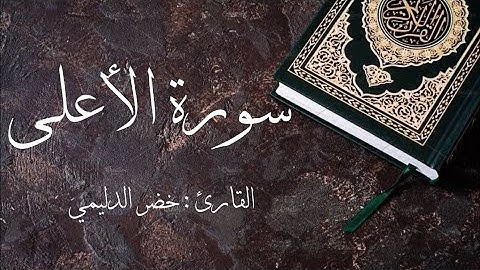 سورة الأعلى
القارئ : خضر الدليمي